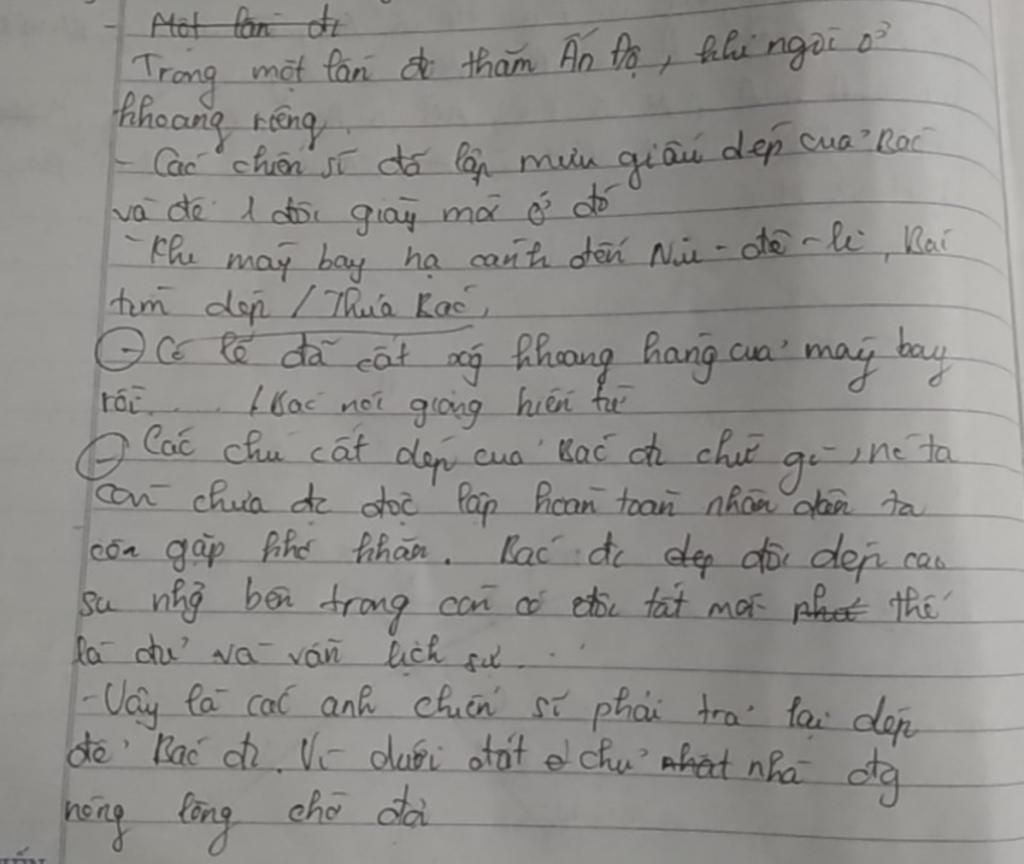 - Một lần đi
Trong một lần đi thăm Ấn Độ, khi ngồi ở
khoang riêng.
- Các chiến sĩ đã lập mưu giấu dép của Bác
và để 1 đôi giày mới ở đó
- Khi máy bay hạ cánh đến Niu-đê-li, Bác
tìm dép / Thưa Bác,
- Có lẽ đã cất xg khoang hàng của máy bay
rồi..... / Bác nói giọng hiền từ
- Các chú cất dép của Bác đi chứ gì, nc ta
còn chưa đc độc lập hoàn toàn nhân dân ta
còn gặp khó khăn. Bác đi dép đôi dép cao
su nhg bên trong còn có đôi tất mới thế
là đủ và vẫn lịch sự...
- Vậy là các anh chiến sĩ phải trả lại dép
để Bác đi. Vì dưới đất chủ nhà đg
nóng lòng chờ đợi